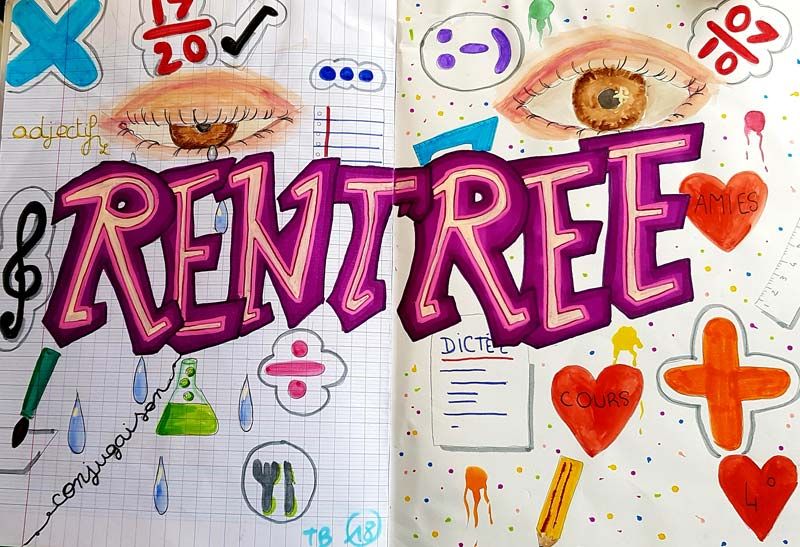 17
20
07
10
adjectifs
RENTREE
AMIES
DICTÉE
COURS
conjugaison
4°
TB 18